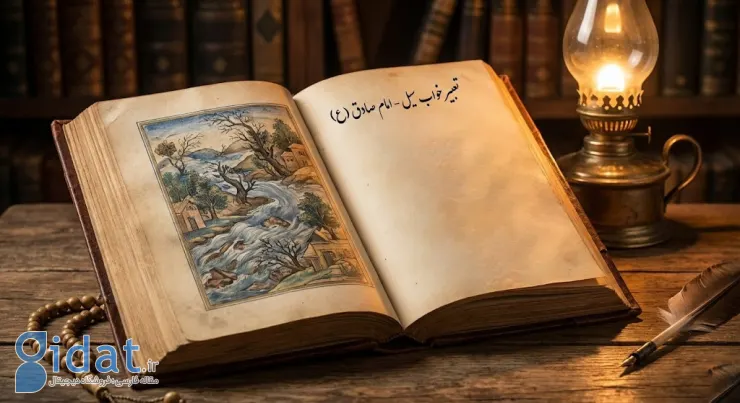 تعبیر خواب سیل - امام صادق (ع)
gidat.ir
مقاله فارسی؛ فروشگاه دیجیتال